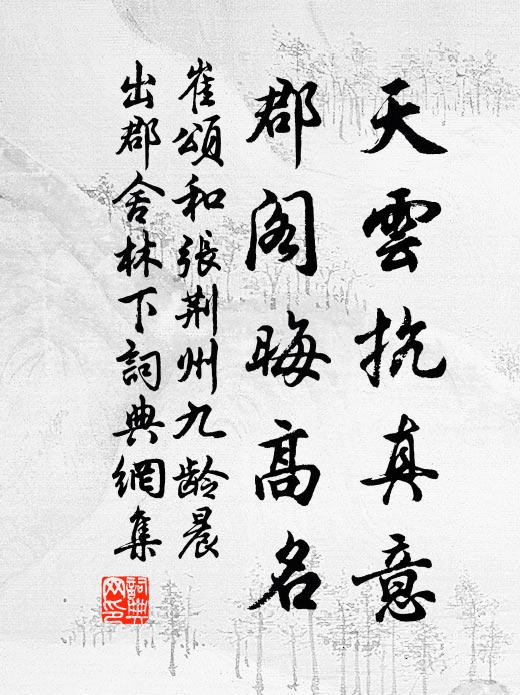 天雲抗真意
郡閣晦高名
崔頌和張荆州九龄晨
出郡舍林下詞典網集
詞典網印